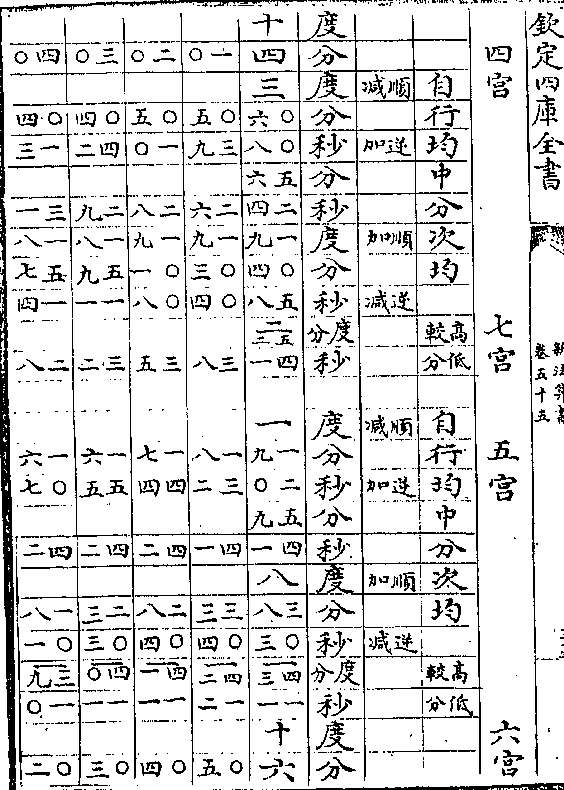 欽定四庫全書
新法算書
卷五十五
四宮 七宮 五宮 六宮
自行均 中分 次均 較高分低 自行均 中分 次均 較高分低
順減 逆加 順加 逆減 順減 逆加 順加 逆減
度分度分秒分秒度分秒度分秒度分秒分秒度分秒度分秒度分
十 四 三 〇六 〇八 五六 二四 一九 〇四 五八 二五三 四一 一 一九 二〇 五九 四一 八 三八 〇三 二四三 一一 十 六
一〇 〇五 三九 二六 一九 〇三 〇四 三八 一八 三二 四一 三三 〇四 四二 一二 〇五
二〇 〇五 一〇 二八 一九 〇一 〇八 三五 一七 四四 四二 二八 〇四 四一 一一 〇四
三〇 〇四 四二 二九 一八 五九 一一 三二 一六 五五 四二 二三 〇三 四〇 一一 〇三
四〇 〇四 一三 三一 一八 五七 一四 二八 一六 〇七 四二 一八 〇一 三九 一〇 〇二